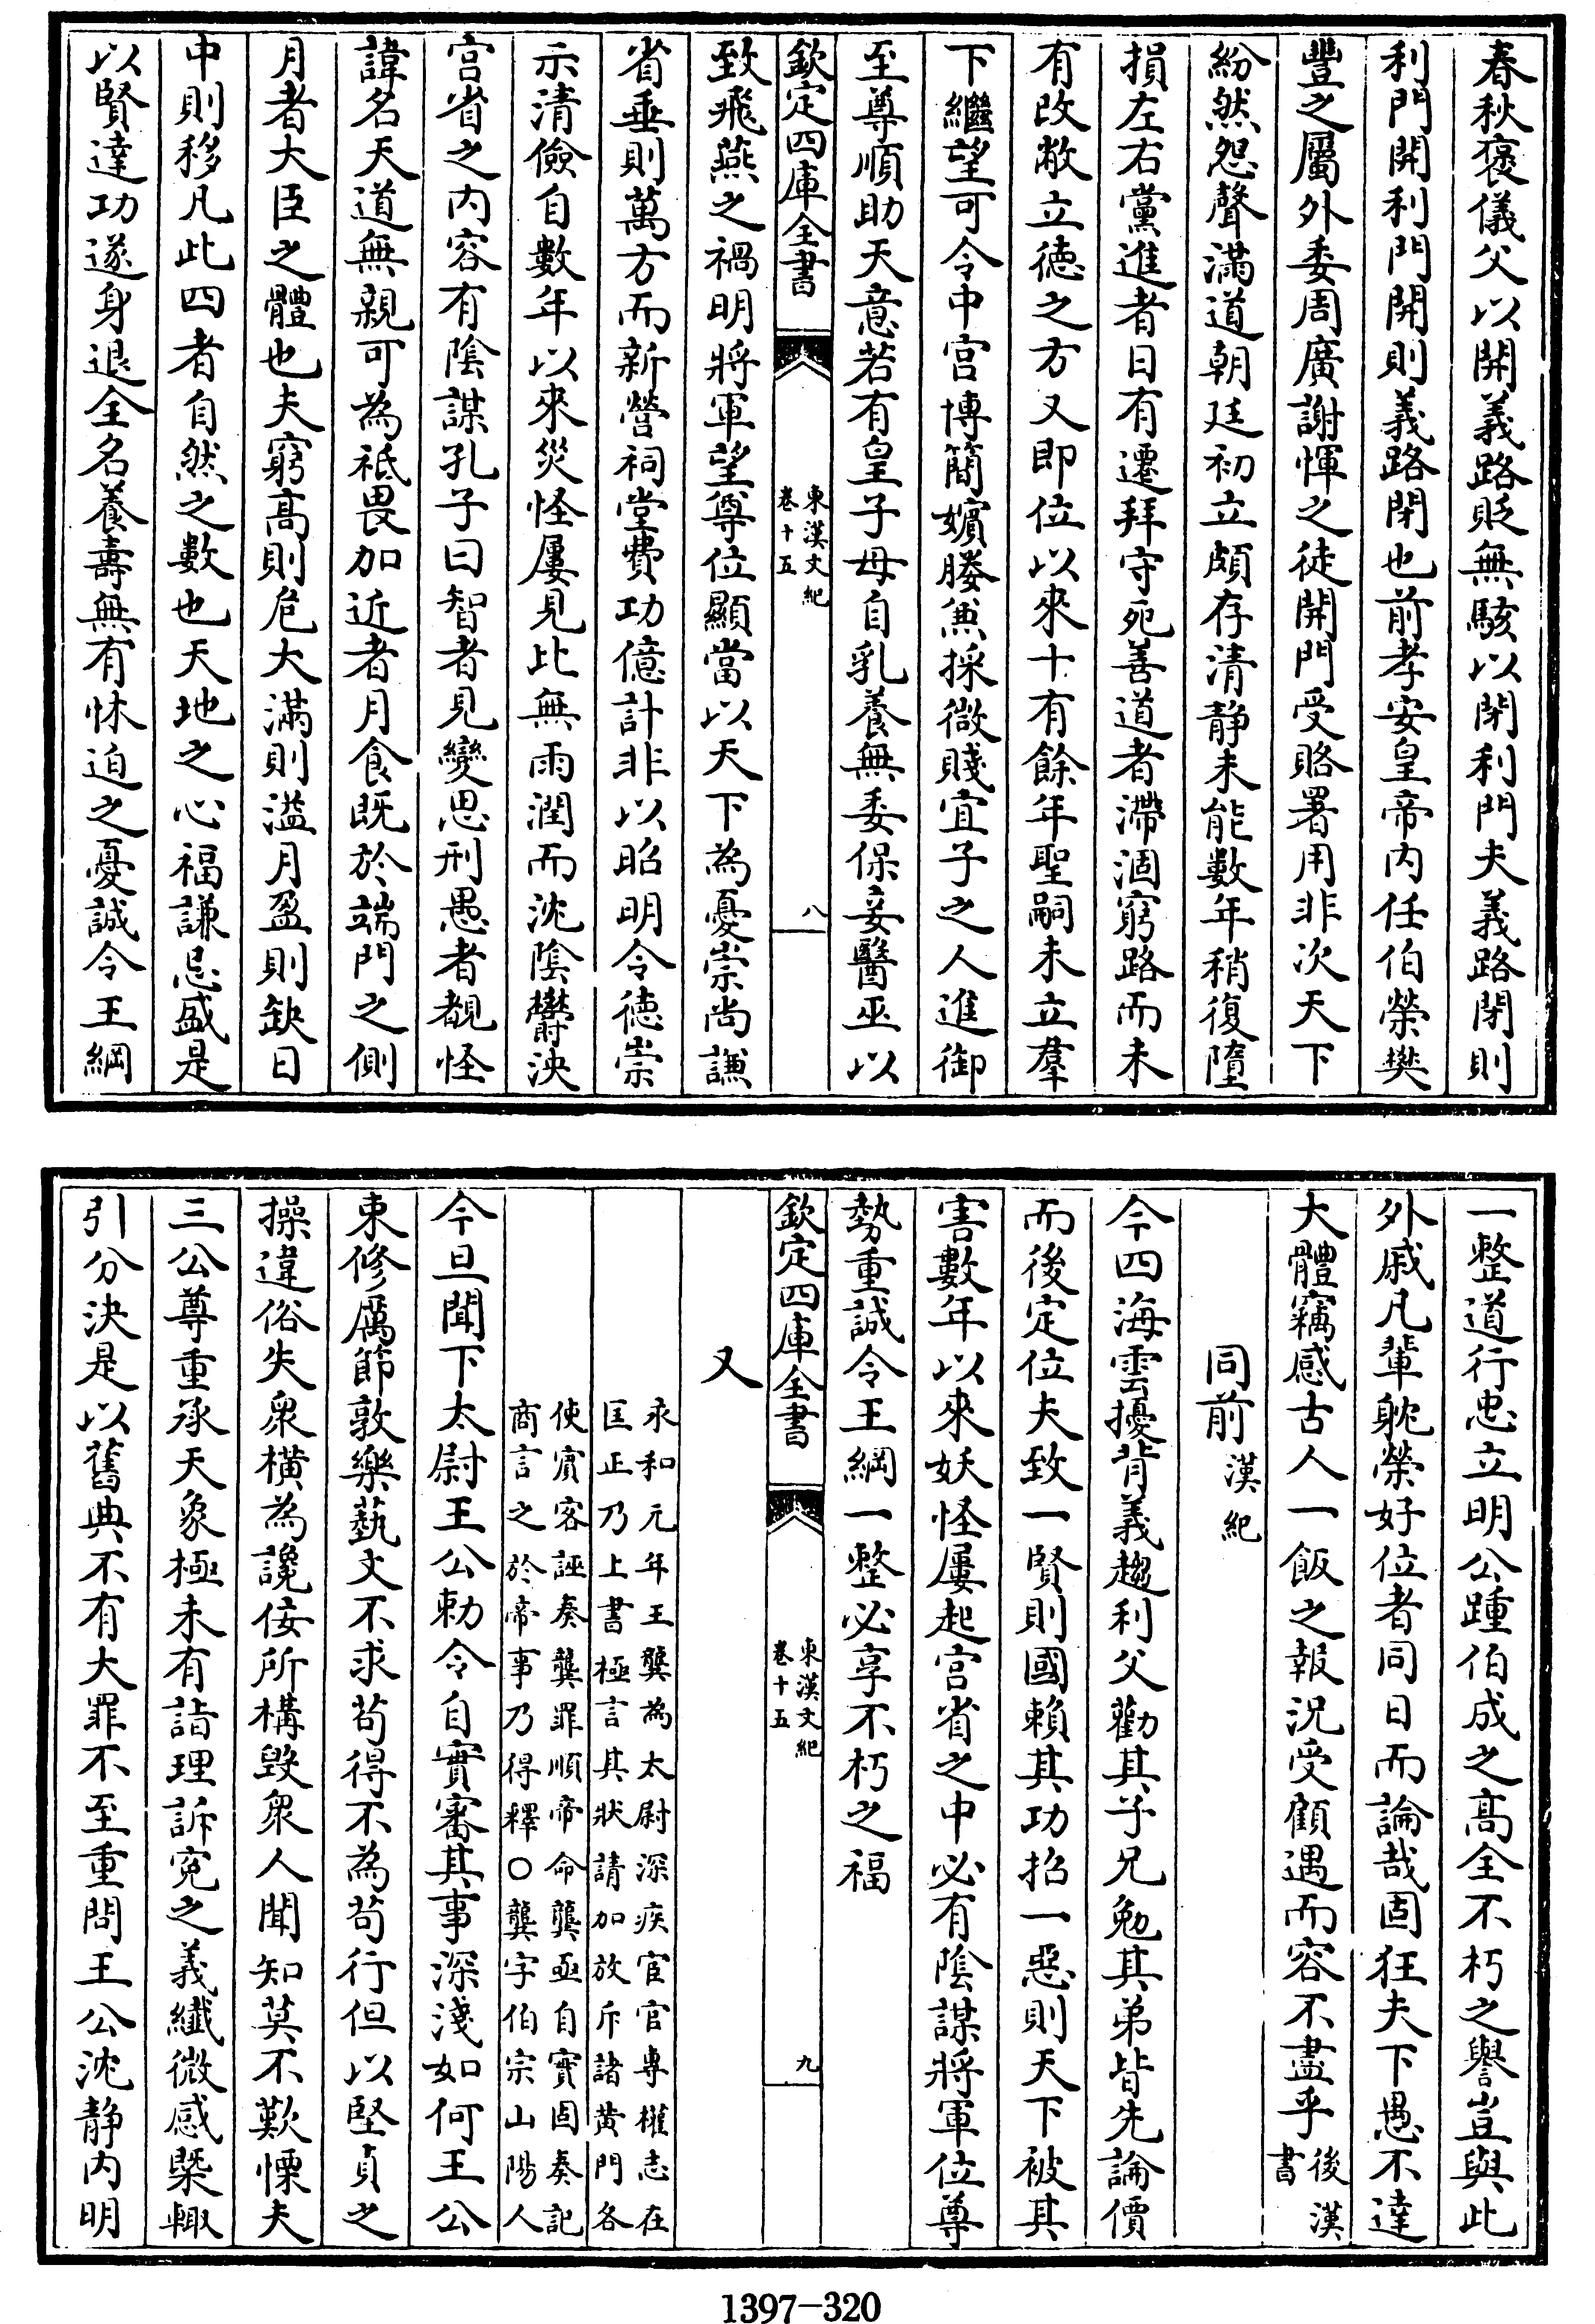 春秋褒儀父以開義路貶無駭以閉利門夫義路閉則
利門開利門開則義路閉也前孝安皇帝内任伯榮樊
豐之屬外委周廣謝惲之徒開門受賂署用非次天下
紛然怨聲滿道朝廷初立頗存清静未能數年稍復墮
損左右黨進者日有遷拜守死善道者滯涸窮路而未
有改敝立徳之方又即位以來十有餘年聖嗣未立羣
下繼望可令中宫博簡嬪媵兼採微賤宜子之人進御
至尊順助天意若有皇子母自乳養無委保妾醫巫以
欽定四庫全書
東漢文紀
卷十五
八
致飛燕之禍明將軍望尊位顯當以天下為憂崇尚謙
省垂則萬方而新營祠堂費功億計非以昭明令徳崇
示清儉自數年以來災怪屢見比無雨潤而沈陰鬱泱
宫省之内容有陰謀孔子曰智者見變思刑愚者覩怪
諱名天道無親可為祗畏加近者月食既於端門之側
月者大臣之體也夫窮髙則危大滿則溢月盈則缺日
中則移凡此四者自然之數也天地之心福謙忌盛是
以賢達功遂身退全名養壽無有怵迫之憂誠令王綱
一整道行忠立明公踵伯成之髙全不朽之譽豈與此
外戚凡輩躭榮好位者同日而論哉固狂夫下愚不達
大體竊感古人一飯之報況受顧遇而容不盡乎後漢
書
同前漢紀
今四海雲擾背義趨利父勸其子兄勉其弟皆先論價
而後定位夫致一賢則國賴其功招一惡則天下被其
害數年以來妖怪屢起宫省之中必有陰謀將軍位尊
勢重誠令王綱一整必享不朽之福
欽定四庫全書
東漢文紀
卷十五
九
又
永和元年王龔為太尉深疾宦官專權志在
匡正乃上書極言其狀請加放斥諸黄門各
使賓客誣奏龔罪順帝命龔亟自實固奏記
商言之於帝事乃得釋○龔字伯宗山陽人
今旦聞下太尉王公勅令自實審其事深淺如何王公
束修厲節敦樂藝文不求苟得不為苟行但以堅貞之
操違俗失衆横為讒佞所構毀衆人聞知莫不歎慄夫
三公尊重承天象極未有詣理訴冤之義纎微感槩輙
引分決是以舊典不有大罪不至重問王公沈静内明
1397-320